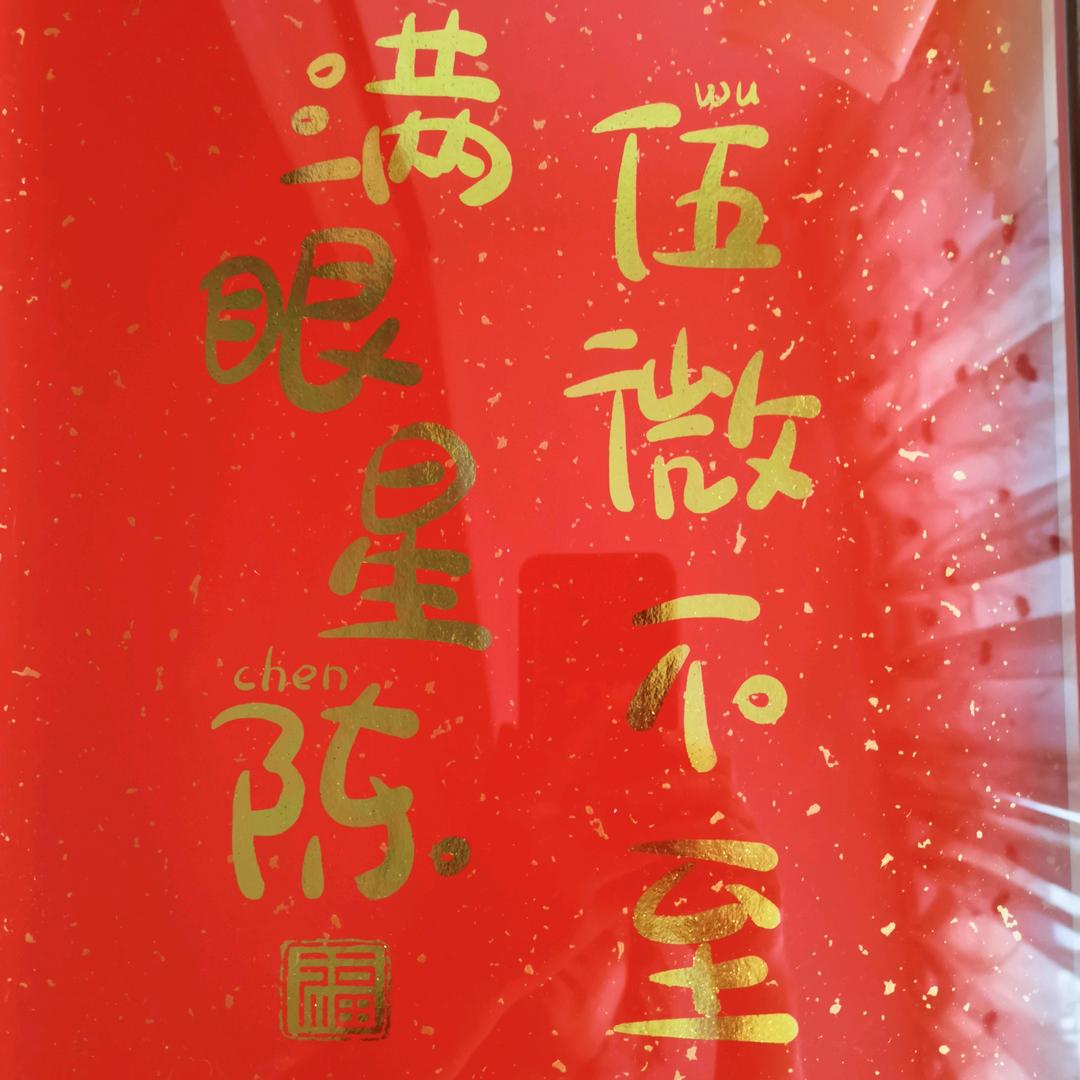 wu
伍微不至
满眼星
chen
陈